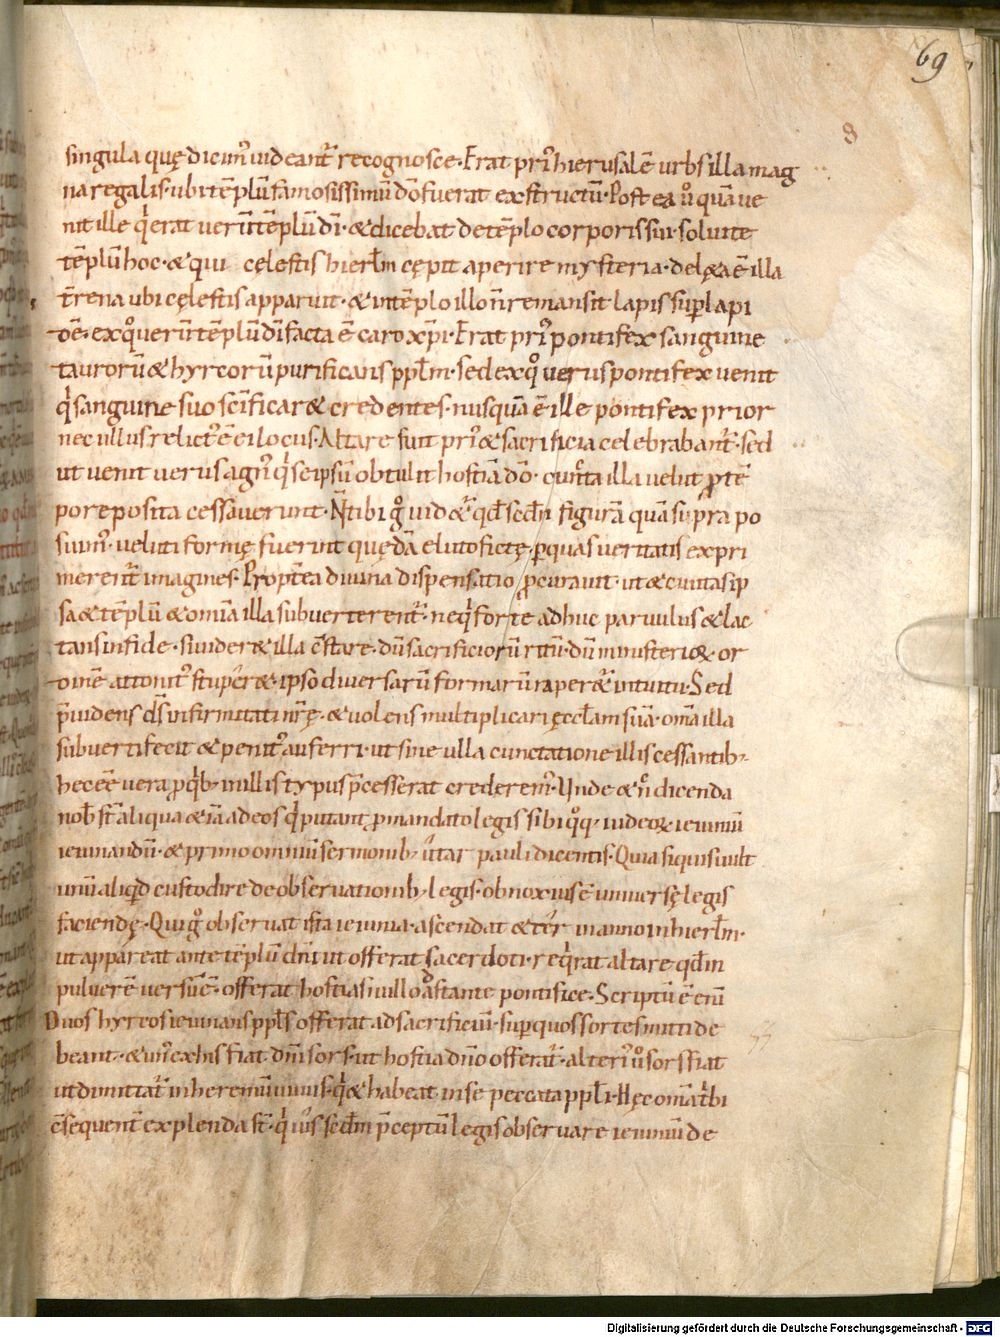 69
singula quę dicim᷒ uideant᷑ recognosce. Erat pri᷒ hierusalē urbs illa mag
na regalis. ubi tēplū famosissimū dō fuerat exstructū. Postea ů quā ue
nit ille q̇ erat uerū tēplū dī. & dicebat de tēplo corporis sui. soluite
tēplū hoc. & qui cęlestis hierlm̄ cępit aperire mysteria. delęta ē illa
t̄rena ubi cęlestis apparuit. & in tēplo illo n̄ remansit lapis sup̱ lapi
dē. ex q̊ uerū tēplū dī facta ē caro xp̄i. Erat pri᷒ pontifex sanguine
taurorū & hyrcorū purificans pplm̄. sed ex q̊ uerus pontifex uenit
q̇ sanguine suo sc̄ificar& credentes. nusquā ē ille pontifex prior
nec ullus relict᷒ ē ei locus. Altare fuit pri᷒ & sacrificia celebrabant᷑. sed
ut uenit uerus agn᷒ q̇ seipsū obtulit hostiā dō. cuncta illa uelut p̱ tē
pore posita cessauerunt. Nn̄ tibi g̊ uid&᷑ qd̄ scdm̄ figurā quā supra po
suim᷒. ueluti formę fuerint quędā e luto fictę. p̱ quas ueritatis expri
merent᷑ imagines. Propt̄ea diuina dispensatio p̱curauit. ut & ciuitas ip
sa & tēplū & omīa illa subuerterent᷑. ne q̇s forte adhuc paruulus & lac
tans in fide. si uider& illa c̄stare. dū sacrificiorū ritū. dū ministerio℞ or
dinē attonit᷒ stuper&. ipso diuersarū formarū raper&᷑ intuitu. Sed
p̄uidens dš infirmitati nr̄ę. & uolens multiplicari ęccłam suā. omīa illa
subuerti fecit & penit᷒ auferri. ut sine ulla cunctatione illis cessantib;
hec eē uera p̱ qb; in illis typus p̄cesserat crederem᷒. Unde & n̄c dicenda
nob̄ st̄ aliqua & iā ad eos q̇ putant p̱ mandato legis sibi q̊q; iudeo℞ ieiuniū
ieiunandū. & primo omniū sermonib; utar pauli dicentis. Quia si quis uult
unū aliqd̄ custodire de obseruationib; legis. obnoxius ē uniuersę legis
faciendę. Qui g̊ obseruat ista ieiunia. ascendat & ter in anno in hierlm̄.
ut appareat ante tēplū dn̄i ut offerat sacerdoti. req̇rat altare qd̄ in
puluerē uersū ē. offerat hostias nullo adstante pontifice. Scriptū ē enī
Duos hyrcos ieiunans pplš offerat ad sacrificiū. sup̱ quos sortes mitti de
beant. & un᷒ ex his fiat dn̄i sors. ut hostia dn̄o offerat᷑. alteri᷒ ů sors fiat
ut dimittat᷑ in heremū uiuus. q̇ & habeat in se peccata ppli. Hęc omīa t̊bi
c̄sequent᷑ explenda st̄. q̇ uis scdm̄ p̄ceptū legis obseruare ieiuniū de
Digitalisierung gefördert durch die Deutsche Forschungsgemeinschaft - DFG